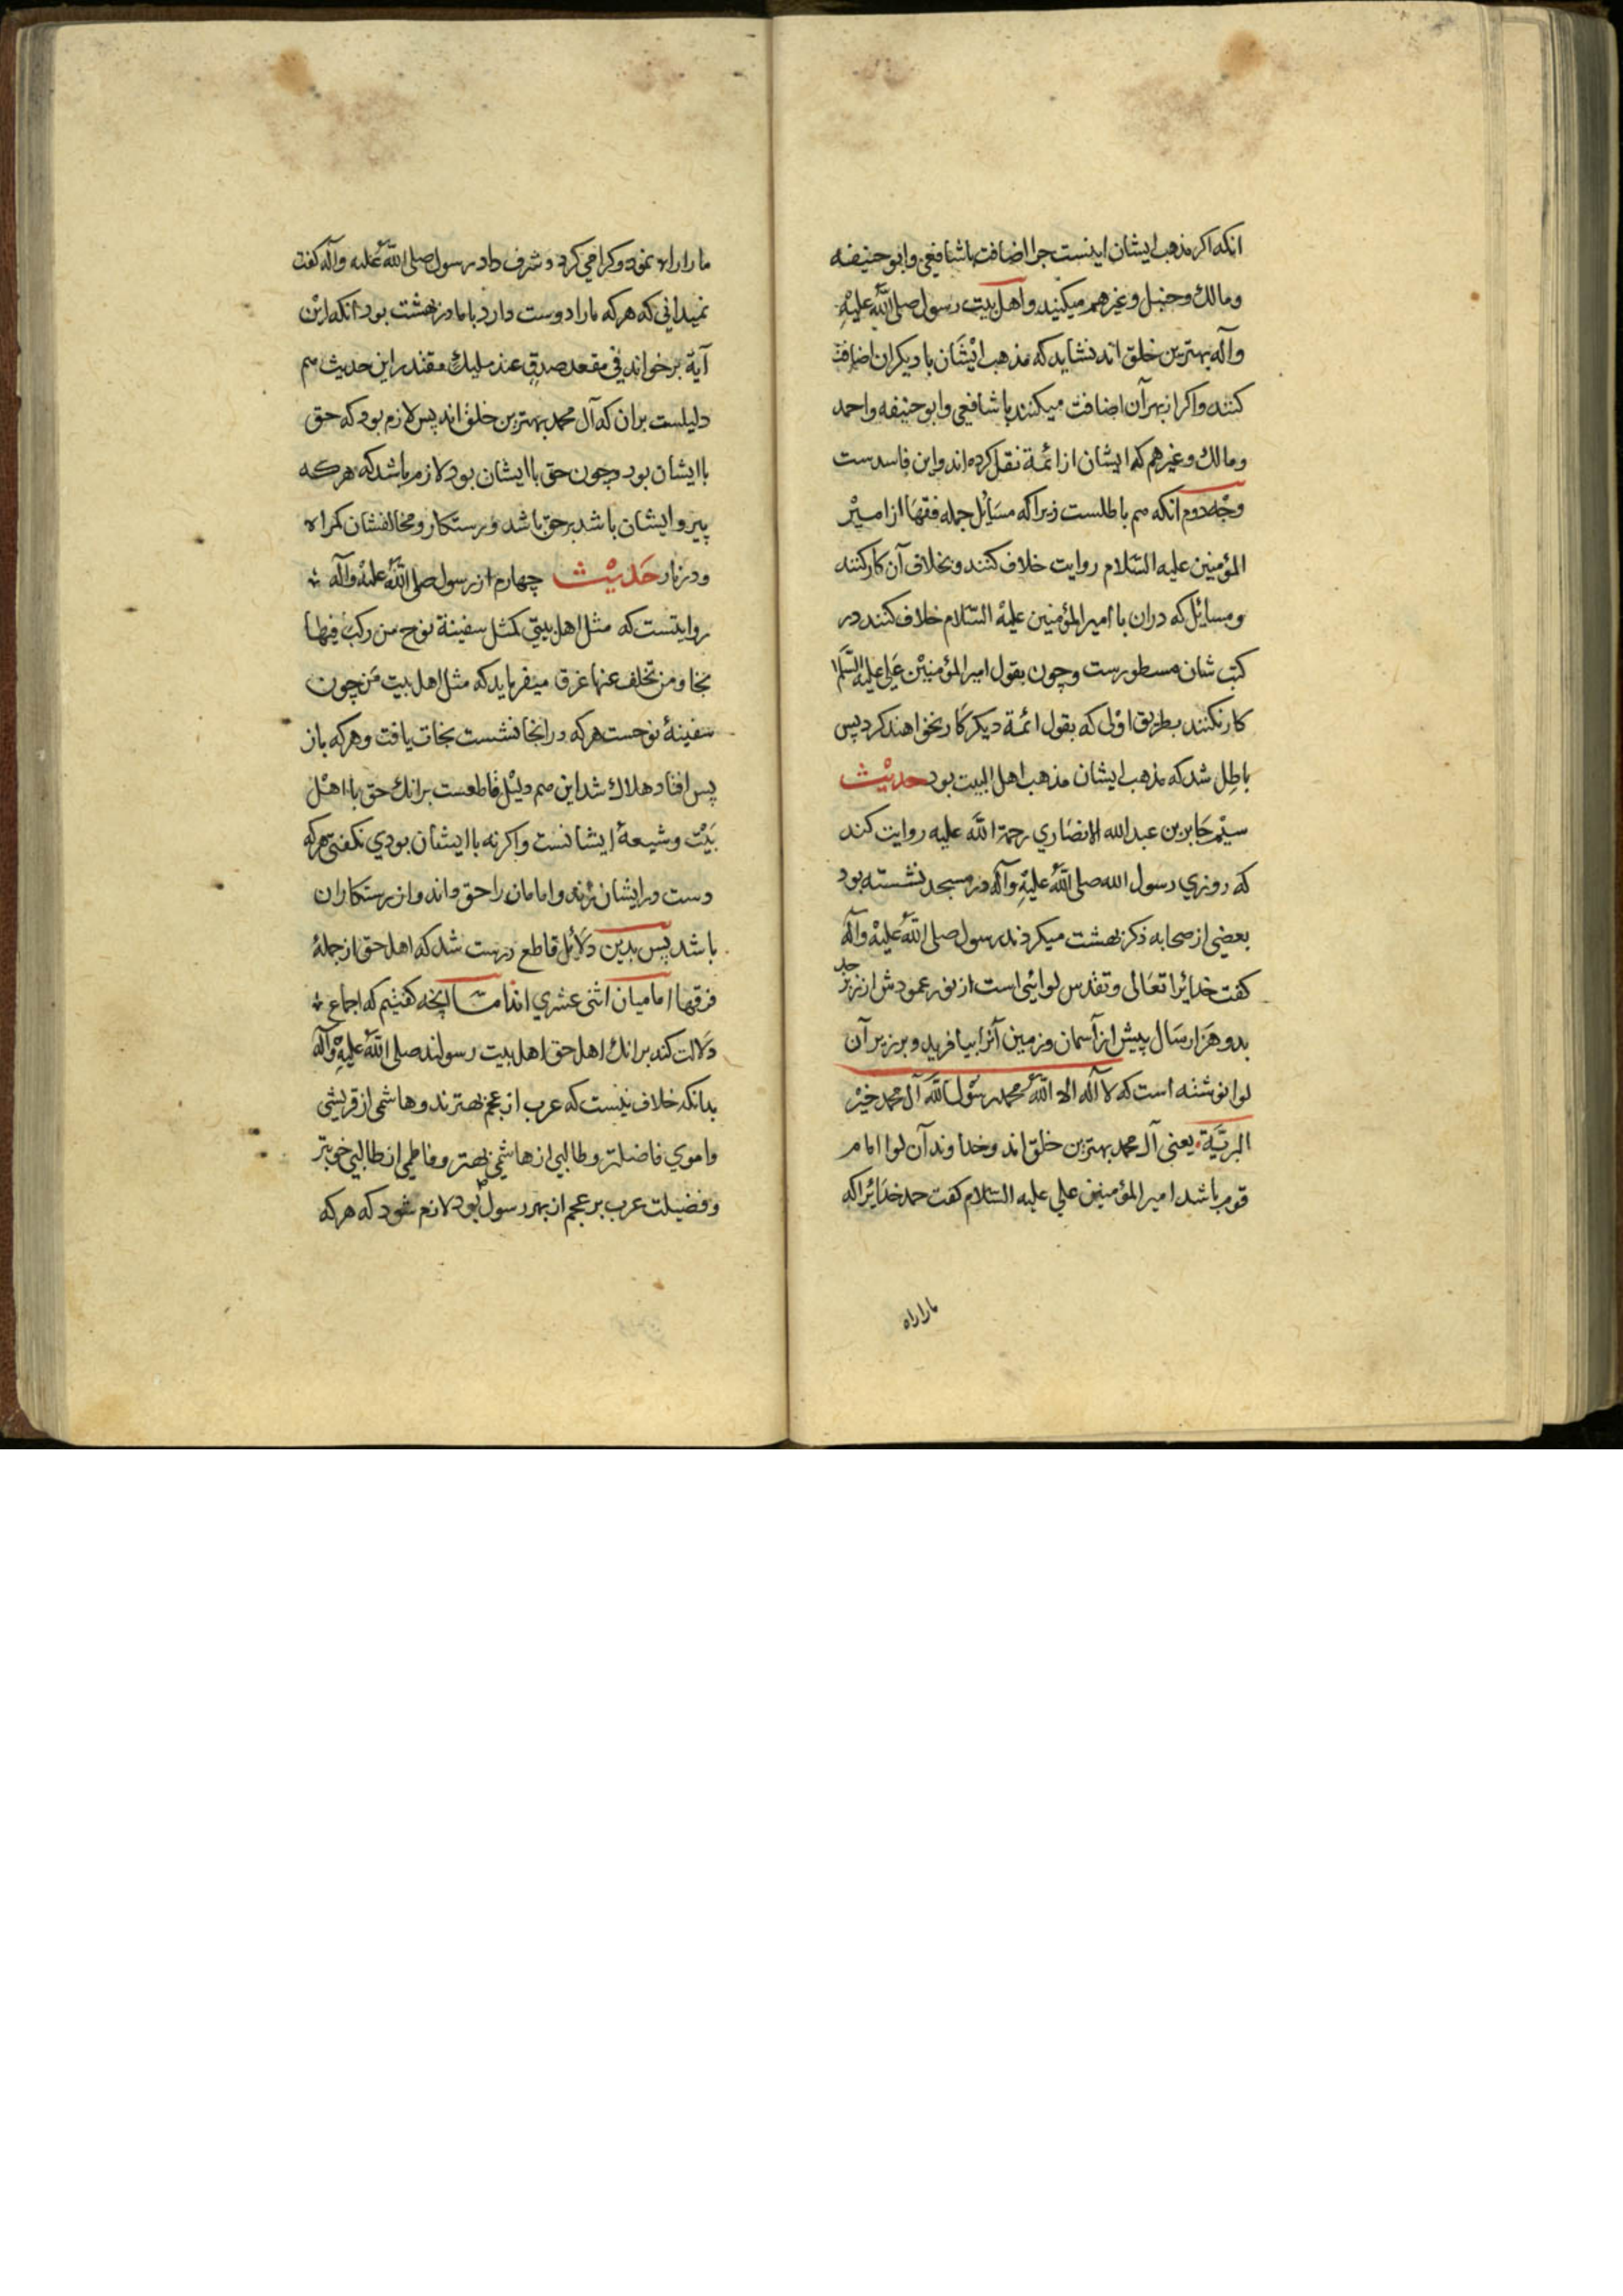 انکه اکر مذهب ایشان اینست چرا اضافت با شافعی وابو حنیفه
ومالك وحنبل وغیرهم میکنید واهل بیت رسول صلی الله علیه
وآله بهترین خلق اند نشاید که مذهب ایشان با دیکران اضافت
کنند واکر از بهر آن اضافت میکنند با شافعی وابو حنیفه واحمد
ومالك وغیرهم که ایشان از ائمة نقل کرده اند واین فاسدست
وجه دوم انکه هم باطلست زیرا که مسایل جمله فقها از امیر
المؤمنین علیه السلام روایت خلاف کنند وبخلاف آن کار کنند
ومسائل که دران با امیر المؤمنین علیه السلام خلاف کنند در
کتب شان مسطورست وچون بقول امیر المؤمنین علی علیه السلام
کار نکنند بطریق اولی که بقول ائمة دیکر کار نخواهند کرد پس
باطل شد که مذهب ایشان مذهب اهل البیت بود حدیث
سیّم جابر بن عبد الله الانصاري رحمة الله علیه روایت کند
که روزي رسول الله صلی الله علیه وآله در مسجد نشسته بود
بعضی از صحابه ذکر بهشت میکردند رسول صلی الله علیه وآله
کفت خدائرا تعالی وتقدس لوائی است از نور عمودش از زبرجد
بدو هزار سال پیش از آسمان وزمین آنرا بیافرید وبرزبر آن
لوا نوشته است که لا اله الا الله محمد رسول الله آل محمد خیر
البریّة یعنی آل محمد بهترین خلق اند وخداوند آن لوا امام
قوم باشد امیر المؤمنین علی علیه السلام کفت حمد خدائرا که
ما را راه
ما را راه نمود وکرامي کرد وشرف داد رسول صلی الله علیه وآله کفت
نمیداني که هر که ما را دوست دارد با ما در بهشت بود انکه این
آیة بر خواند في مقعد صدق عند ملیك مقتدر این حدیث هم
دلیلست بران که آل محمد بهترین خلق اند پس لازم بود که حق
با ایشان بود وچون حق با ایشان بود لازم باشد که هرکه
پیرو ایشان باشد بر حق باشد ورستکار ومخالفشان کمراه
ودر نار حدیث چهارم از رسول صلی الله علیه وآله
روایتست که مثل اهل بیتي کمثل سفینة نوح من رکب فیها
نجا ومن تخلف عنها غرق میفرماید که مثل اهل بیت من چون
سفینهٔ نوحست هرکه در انجا نشست نجات یافت وهرکه باز
پس افتاد هلاك شد این هم دلیل قاطعست برانك حق با اهل
بیت وشیعهٔ ایشانست واکر نه با ایشان بودي نکفتی هرکه
دست در ایشان زند وامامان را حق داند واز رستکاران
باشد پس بدین دلائل قاطع درست شد که اهل حق از جملهٔ
فرقها امامیان اثنی عشري اند اما انچه کفتیم که اجماع
دلالت کند برانك اهل حق اهل بیت رسولند صلی الله علیه وآله
بدانکه خلاف نیست که عرب از عجم بهترند وهاشمی از قریشی
واموي فاضلتر وطالبي از هاشمی بهتر وفاطمی از طالبي خوبتر
وفضیلت عرب بر عجم از بهر رسول بود لازم شود که هرکه